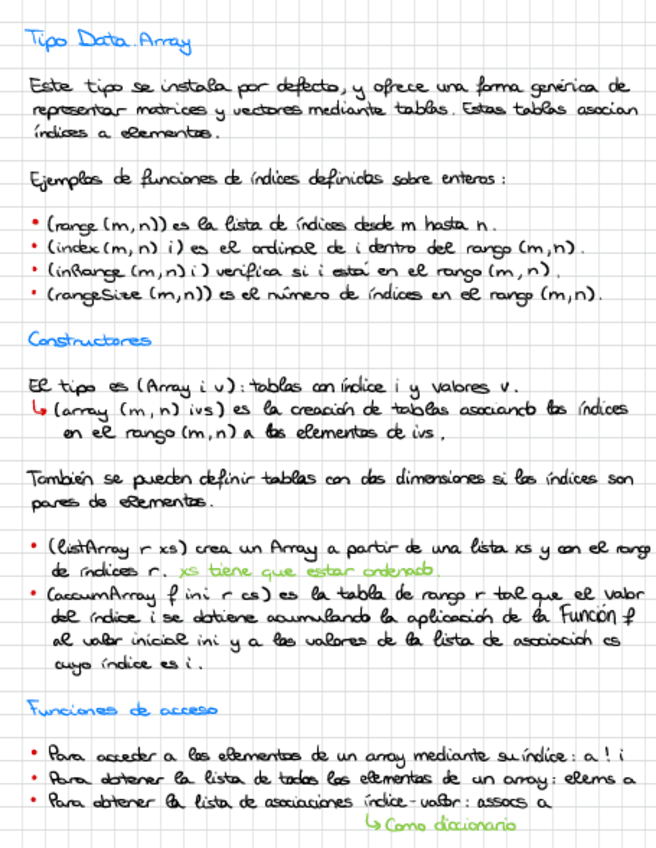 Tipo Data.Array
Este tipo se instala por defecto, y ofrece una forma genérica de
representar matrices y vectores mediante tablas. Estas tablas asocian
índices a elementos.
Ejemplos de funciones de índices definidas sobre enteros:
• (range (m,n)) es la lista de índices desde m hasta n.
• (index (m,n) i) es el ordinal de i dentro del rango (m,n).
• (inRange (m,n) i) verifica si i está en el rango (m,n).
• (rangeSize (m,n)) es el número de índices en el rango (m,n).
Constructores
El tipo es (Array i v): tablas con índice i y valores v.
↳ (array (m,n) ivs) es la creación de tablas asociando los índices
en el rango (m,n) a los elementos de ivs.
También se pueden definir tablas con dos dimensiones si los índices son
pares de elementos.
• (listArray r xs) crea un Array a partir de una lista xs y con el rango
de índices r. xs tiene que estar ordenado.
• (accumArray f ini r cs) es la tabla de rango r tal que el valor
del índice i se obtiene acumulando la aplicación de la Función f
al valor inicial ini y a los valores de la lista de asociación cs
cuyo índice es i.
Funciones de acceso
• Para acceder a los elementos de un array mediante su índice: a ! i
• Para obtener la lista de todos los elementos de un array: elems a
• Para obtener la lista de asociaciones índice-valor: assocs a
↳ Como diccionario